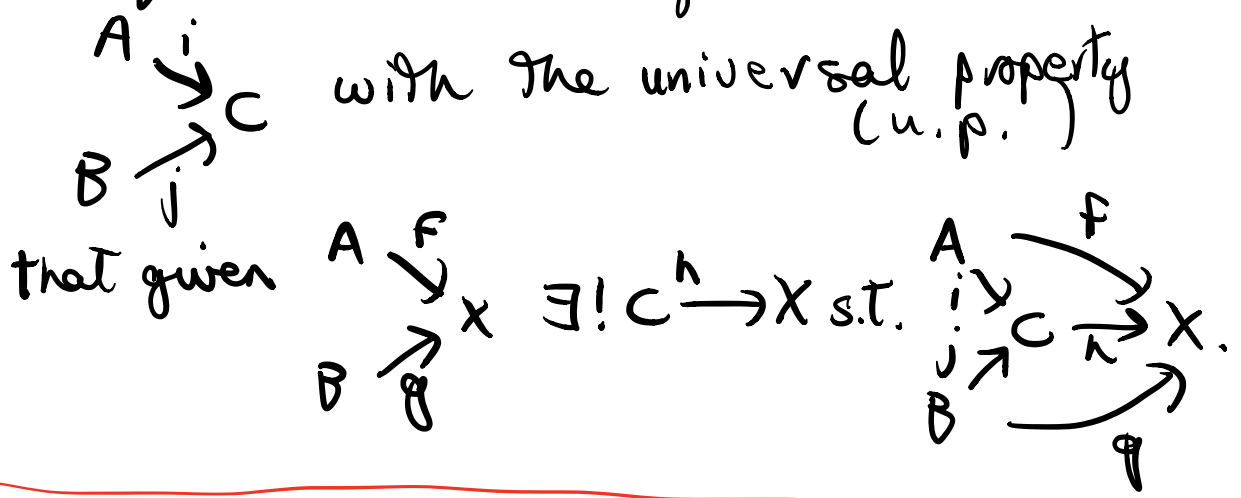 A i
C with the universal property
(u.p.)
B j
that given A f X B g ∃! C h→ X s.t. A f i C h→ X. j B g